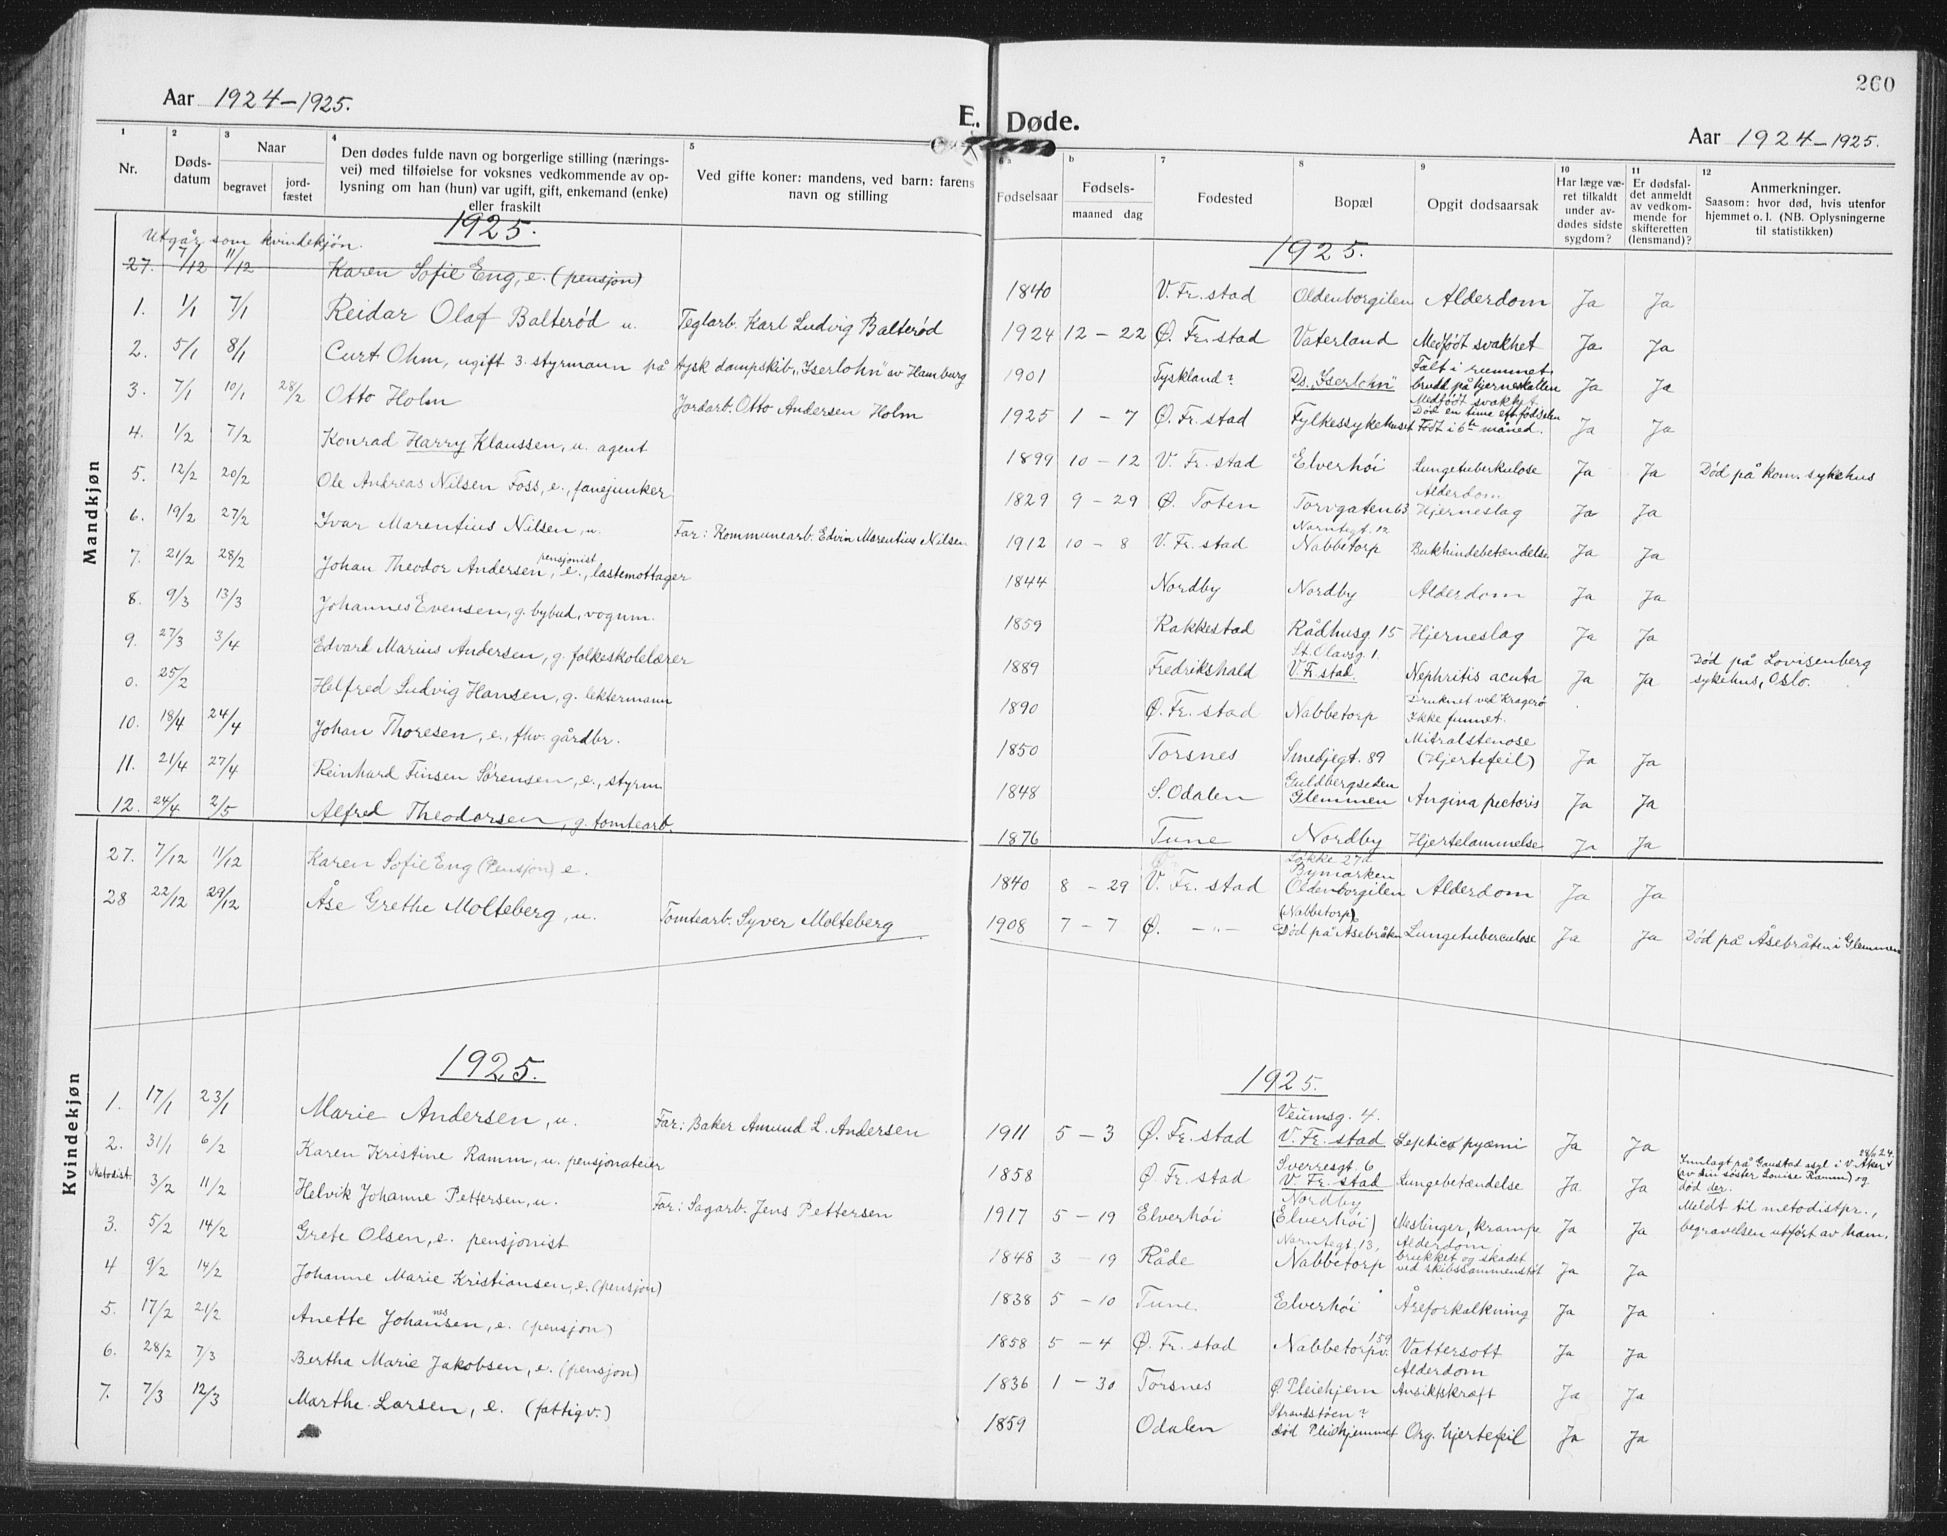 260
Aar 1924-1925.
E. Døde.
Aar 1924-1925.
1 2 3 4 5 6a b 7 8 9 10 11 12
Nr.
Døds-
datum
Naar
begravet
jord-
fæstet
Den dødes fulde navn og borgerlige stilling (nærings-
vei) med tilføielse for voksnes vedkommende av op-
lysning om han (hun) var ugift, gift, enkemand (enke)
eller fraskilt
Ved gifte koner: mandens, ved barn: farens
navn og stilling
Fødselsaar
Fødsels-
maaned dag
Fødested
Bopæl
Opgit dødsaarsak
Har læge væ-
ret tilkaldt
under av-
dødes sidste
sygdom?
Er dødsfal-
det anmeldt
av vedkom-
mende for
skifteretten
(lensmand)?
Anmerkninger.
Saasom: hvor død, hvis utenfor
hjemmet o. l. (NB. Oplysningerne
til statistikken)
Mandkjøn
1925. 1925.
Utgår som kvindekjøn.
27. 7/12 11/12 Karen Sofie Eng, e. (pensjon) 1840 V. Fr. stad Oldenborgilen Alderdom Ja Ja
1. 1/1 7/1 Reidar Olaf Balterød u. Teglarb. Karl Ludvig Balterød 1924 12 - 22 Ø. Fr. stad Vaterland Medfødt svakhet Ja Ja
2. 5/1 8/1 Curt Ohm, ugift 3. styrmann på tysk dampskib "Iserlohn" av Hamburg 1901 Tyskland? Ds. "Iserlohn" Falt i rummet brudd på hjerneskallen Ja Ja
3. 7/1 10/1 28/2 Otto Holm Jordarb. Otto Andersen Holm 1925 1 - 7 Ø. Fr. stad Fylkessykehuset Medfødt svakhet. Død en time eft. fødselen Født i 6te måned. Ja Ja
4. 1/2 7/2 Konrad Harry Klaussen, u. agent 1899 10 - 12 V. Fr. stad Elverhøi Lungetuberkulose Ja Ja Død på kom. sykehus
5. 12/2 20/2 Ole Andreas Nilsen Foss, e., fanejunker 1829 9 - 29 Ø. Toten Torvgaten 63 Alderdom Hjerneslag Ja Ja
6. 19/2 27/2 Ivar Marentius Nilsen, u. Far: Kommunearb. Edvin Marentius Nilsen 1912 10 - 8 V. Fr. stad Nornegt. 12 Nabbetorp Bukhindebetændelse Ja Ja
7. 21/2 28/2 Johan Theodor Andersen, pensjonist e., lastemottager 1844 Nordby Nordby Alderdom Ja Ja
8. 9/3 13/3 Johannes Evensen, g. bybud, vognm. 1859 Rakkestad Rådhusg. 15 Hjerneslag Ja Ja
9. 27/3 3/4 Edvard Marius Andersen, g. folkeskolelærer 1889 Fredrikshald St. Olavsg. 1. V. Fr. stad Nephritis acuta Ja Ja Død på Lovisenberg sykehus, Oslo.
0. 25/2 Helfred Ludvig Hansen, g. lektermann 1890 Ø. Fr. stad Nabbetorp Druknet ved Kragerø Ikke funnet.
10. 18/4 24/4 Johan Thoresen, e., fhv. gårdbr. 1850 Torsnes Smedjegt. 89 Mitralstenose (Hjertefeil) Ja Ja
11. 21/4 27/4 Reinhard Finsen Sørensen, e., styrm. 1848 S. Odalen Guldbergseden Glemmen Angina pectoris Ja Ja
12. 24/4 2/5 Alfred Theodorsen, g. tomtearb. 1876 Tune Nordby Hjertelammelse Ja Ja
Kvindekjøn
27. 7/12 11/12 Karen Sofie Eng (Pensjon) e. 1840 8 - 29 V. Fr. stad Løkke 27d Bymarken Oldenborgilen Alderdom Ja Ja
28 22/12 29/12 Åse Grethe Molteberg, u. Tomtearb. Syver Molteberg 1908 7 - 7 Ø. -"- (Nabbetorp) Død på Åsebråten Lungetuberculose Ja Ja Død på Åsebråten i Glemmen
1925. 1925.
1. 17/1 23/1 Marie Andersen, u. Far: Baker Amund L. Andersen 1911 5 - 3 Ø. Fr. stad Veumsg. 4. V. Fr. stad Septico pyæmi Ja Ja
2. 31/1 6/2 Karen Kristine Ramm, u. pensjonateier 1858 Ø. Fr. stad Sverresgt. 6 V. Fr. stad Lungebetændelse Ja Ja Innlagt på Gaustad asyl i V. Aker (av sin søster Louise Ramm) og død der.
Metodist. 3/2 11/2 Helvik Johanne Pettersen, u. Far: Sagarb. Jens Pettersen 1917 5 - 19 Elverhøi Nordby (Elverhøi) Meslinger, krampe Ja Ja Meldt til metodistpr., begravelsen utført av ham.
3. 5/2 14/2 Grete Olsen, e. pensjonist 1848 3 - 19 Råde Nornegt. 13, Nabbetorp Alderdom, brukket og skadet ved skibssammenstøt Ja Ja
4 9/2 14/2 Johanne Marie Kristiansen, e. (pensjon) 1838 5 - 10 Tune Elverhøi Åreforkalkning Ja Ja
5. 17/2 21/2 Anette Johannesen, e. (pensjon) 1858 5 - 4 Ø. Fr. stad Nabbetorpv. 159 Vattersott Ja Ja
6. 28/2 7/3 Bertha Marie Jakobsen, e. (pensjon) 1836 1 - 30 Torsnes Ø. Pleiehjem Alderdom Ansiktskræft Ja Ja
7. 7/3 12/3 Marthe Larsen, e. (fattigv.) 1859 Odalen Strandstøen? død Pleiehjemmet Org. hjertefeil Ja Ja